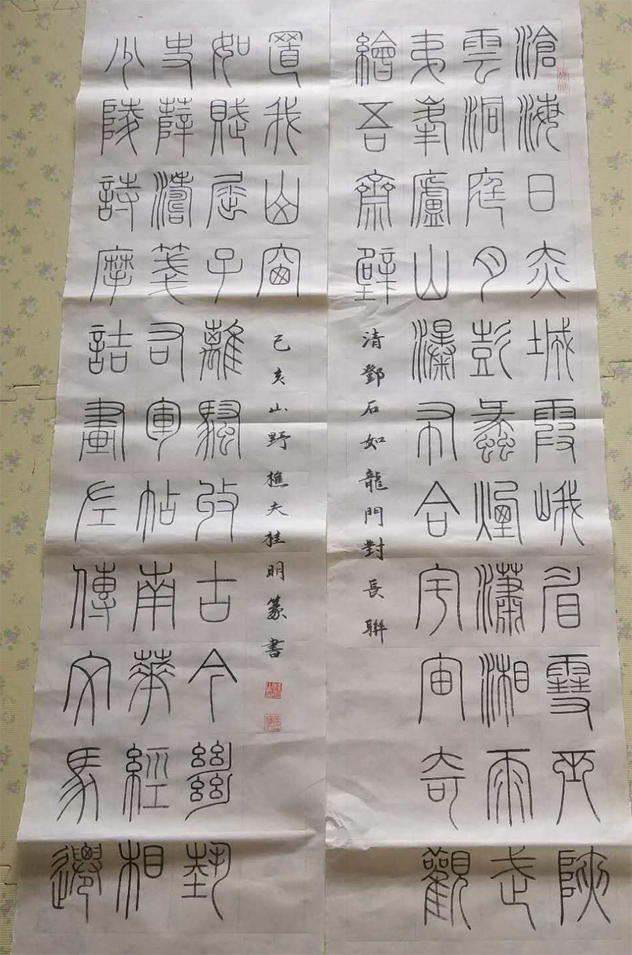 滄海日赤城霞峨眉雪巫陜
雲洞庭月彭蠡煙瀟湘雨武
夷峯廬山瀑布合宇宙奇觀
繪吾齋壁
清鄧石如龍門對長聯
少陵詩摩詰畫左傳文馬遷
史薛濤箋右軍帖南華經相
如賦屈子離騷收古今絕藝
置我山窗
己亥山野樵夫桂明篆書